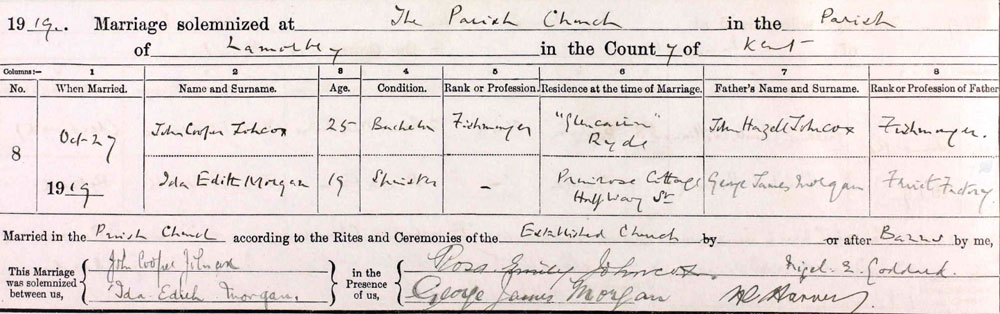 1919. Marriage solemnized at The Parish Church in the Parish
of Lamorbey in the County of Kent
Columns:— 1 2 3 4 5 6 7 8
No. When Married. Name and Surname. Age. Condition. Rank or Profession. Residence at the time of Marriage. Father's Name and Surname. Rank or Profession of Father
8 Oct-27 1919 John Cooper Johncox 25 Bachelor Fishmonger "Glencairn" Ryde John Hazell Johncox Fishmonger.
Ida Edith Morgan 19 Spinster – Primrose Cottage Half Way St George James Morgan Factory
Married in the Parish Church according to the Rites and Ceremonies of the Established Church by or after Banns by me,
This Marriage was solemnized between us, John Cooper Johncox in the Presence of us, Rosa Emily Johncox. Nigel E. Goddard.
Ida Edith Morgan. George James Morgan Harvey.